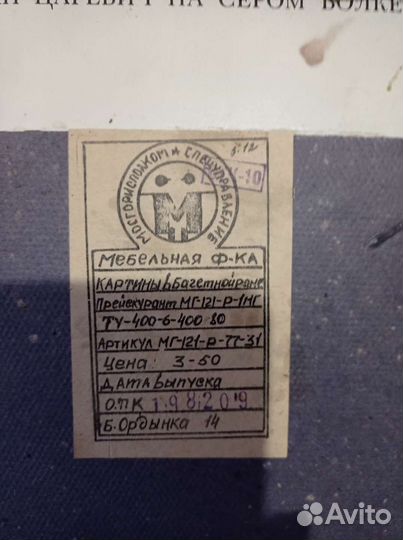 ЦАРЕВИЧ НА СЕРОМ ВОЛКЕ
5-12
-10
МОСГОРИСПОЛКОМ ★ СПЕЦУПРАВЛЕНИЕ
М
МЕБЕЛЬНАЯ Ф-КА
КАРТИНЫ в БАГЕТНОЙ РАМЕ
Прейскурант МГ-121-Р-1МГ
ТУ-400-6-400-80
АРТИКУЛ МГ-121-Р-77-31
Цена 3-50
ДАТА выпуска
О.П.К 198209
Б. ОРДЫНКА 14
Avito